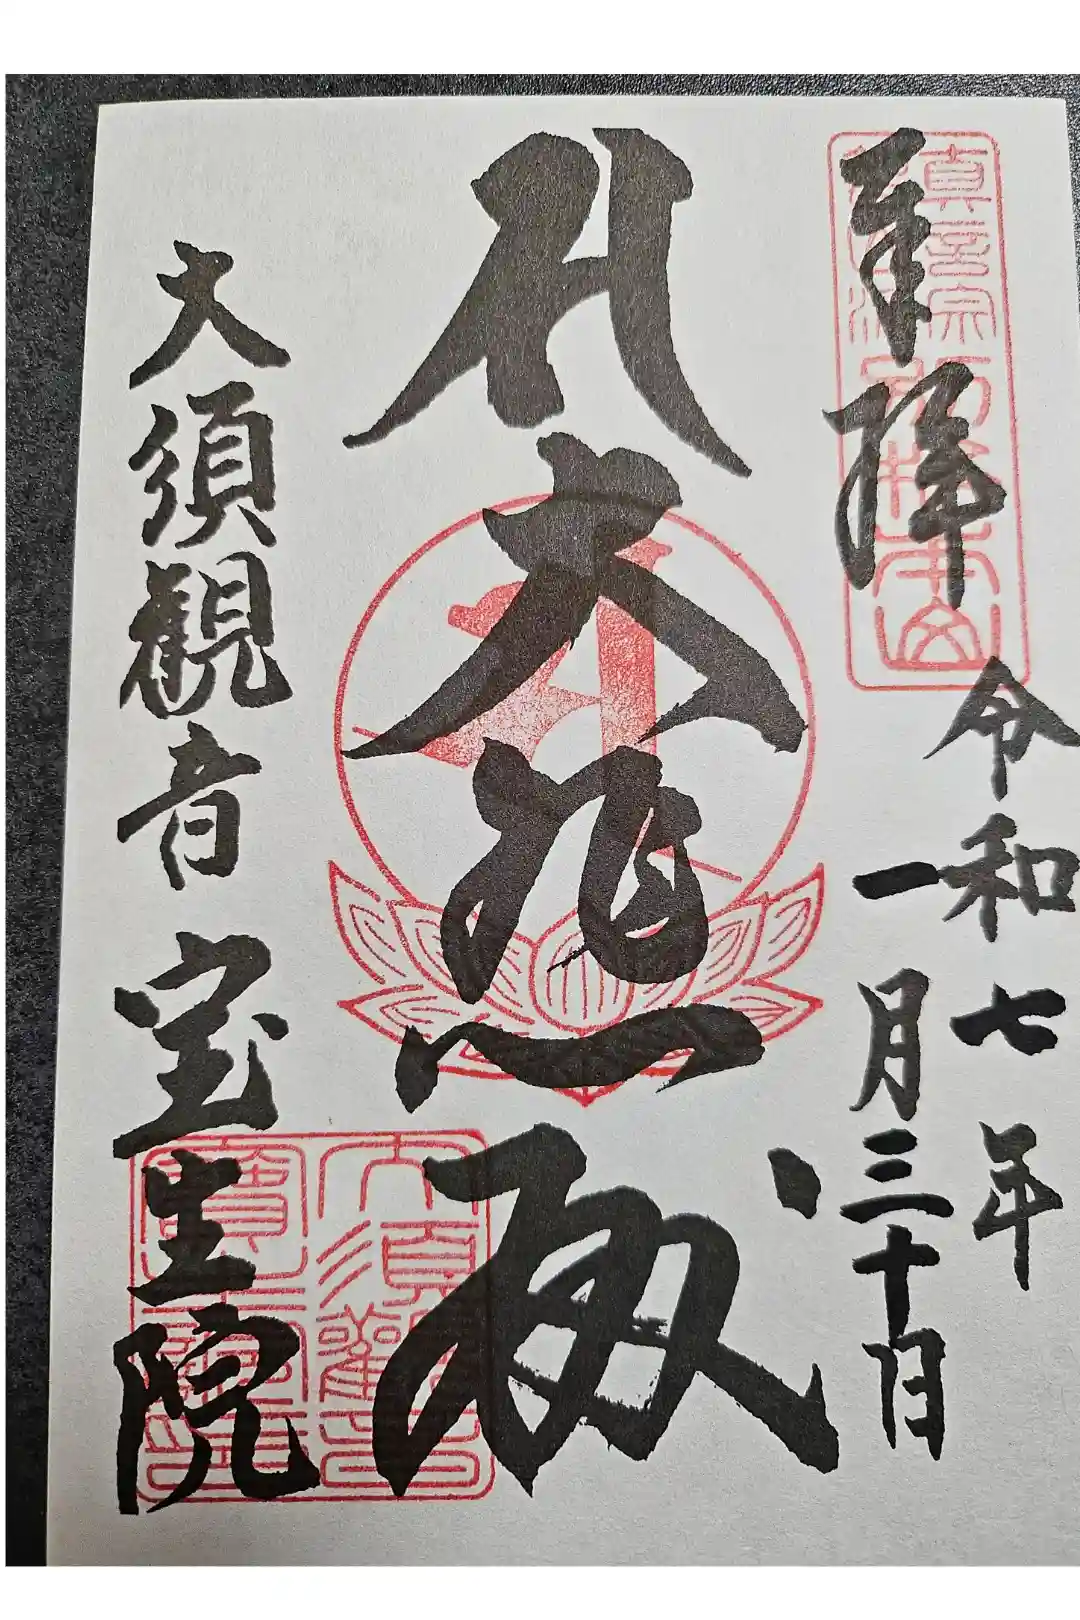 奉拝
令和七年
一月三十日
大悲殿
大須観音 宝生院
真言宗
大須観音